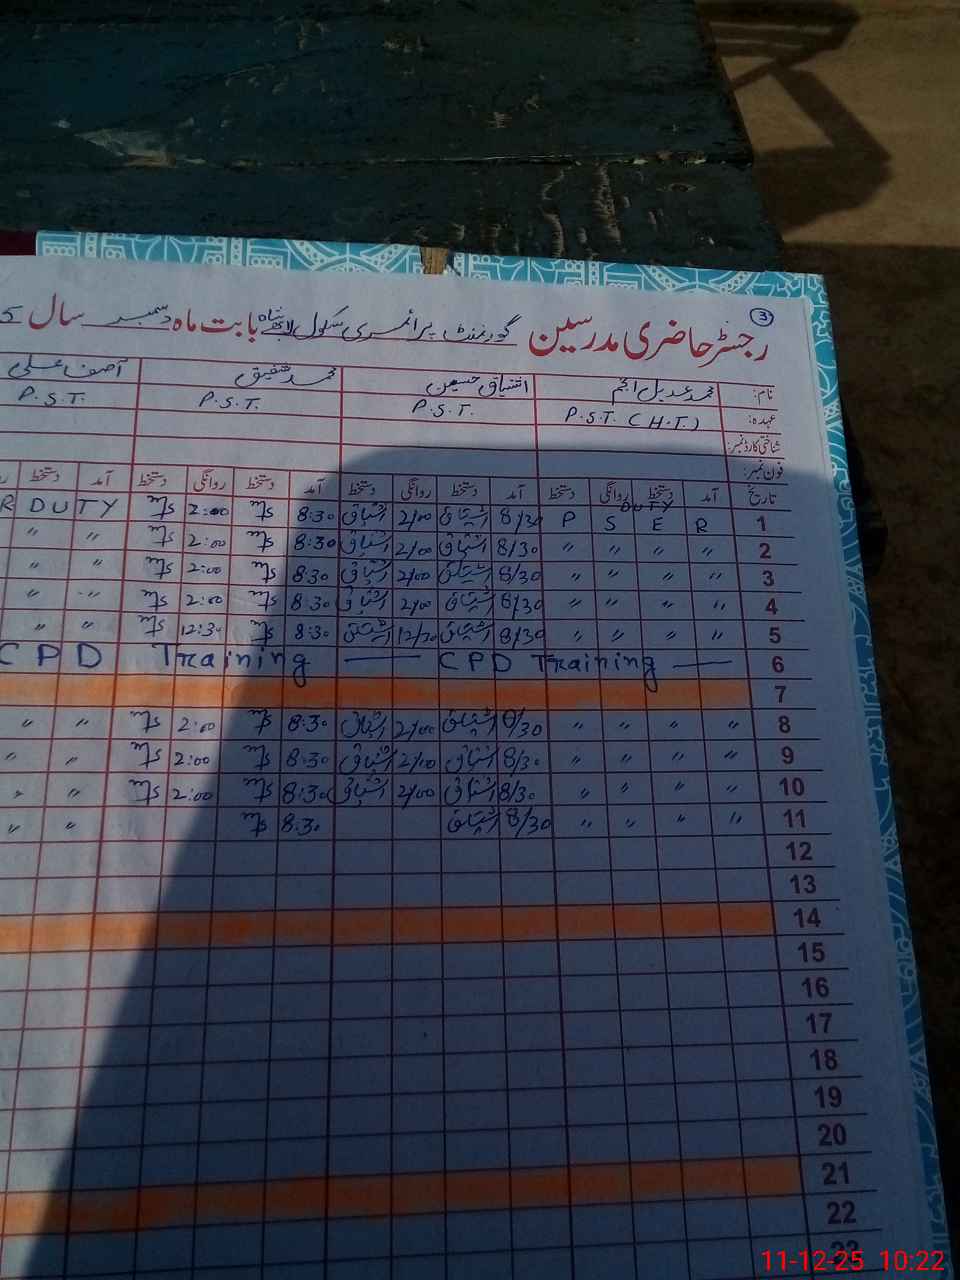 3
رجسٹر حاضری مدرسین گورنمنٹ پرائمری سکول بابت ماہ دسمبر سال 5
نام: محمد عدیل انجم اشتیاق حسین محمد شفیق آصف علی
عہدہ: P.S.T. (H.T.) P.S.T. P.S.T. P.S.T.
شناختی کارڈ نمبر:
فون نمبر:
تاریخ آمد دستخط روانگی دستخط آمد دستخط روانگی دستخط آمد دستخط روانگی دستخط آمد دستخط
1 P S E R DUTY 8/30 اشتیاق 2/00 اشتیاق 8:30 2:00 R DUTY
2 " " " " 8/30 اشتیاق 2/00 اشتیاق 8:30 2:00 " "
3 " " " " 8/30 اشتیاق 2/00 اشتیاق 8:30 2:00 " "
4 " " " " 8/30 اشتیاق 2/00 اشتیاق 8:30 2:00 " "
5 " " " " 8/30 اشتیاق 12/30 اشتیاق 8:30 12:30 " "
6 CPD Training — CPD Training —
7
8 " " " " 8/30 اشتیاق 2/00 اشتیاق 8:30 2:00 " "
9 " " " " 8/30 اشتیاق 2/00 اشتیاق 8:30 2:00 " "
10 " " " " 8/30 اشتیاق 2/00 اشتیاق 8:30 2:00 " "
11 " " " " 8/30 اشتیاق 8:30 " "
12
13
14
15
16
17
18
19
20
21
22
23
11-12-25 10:22